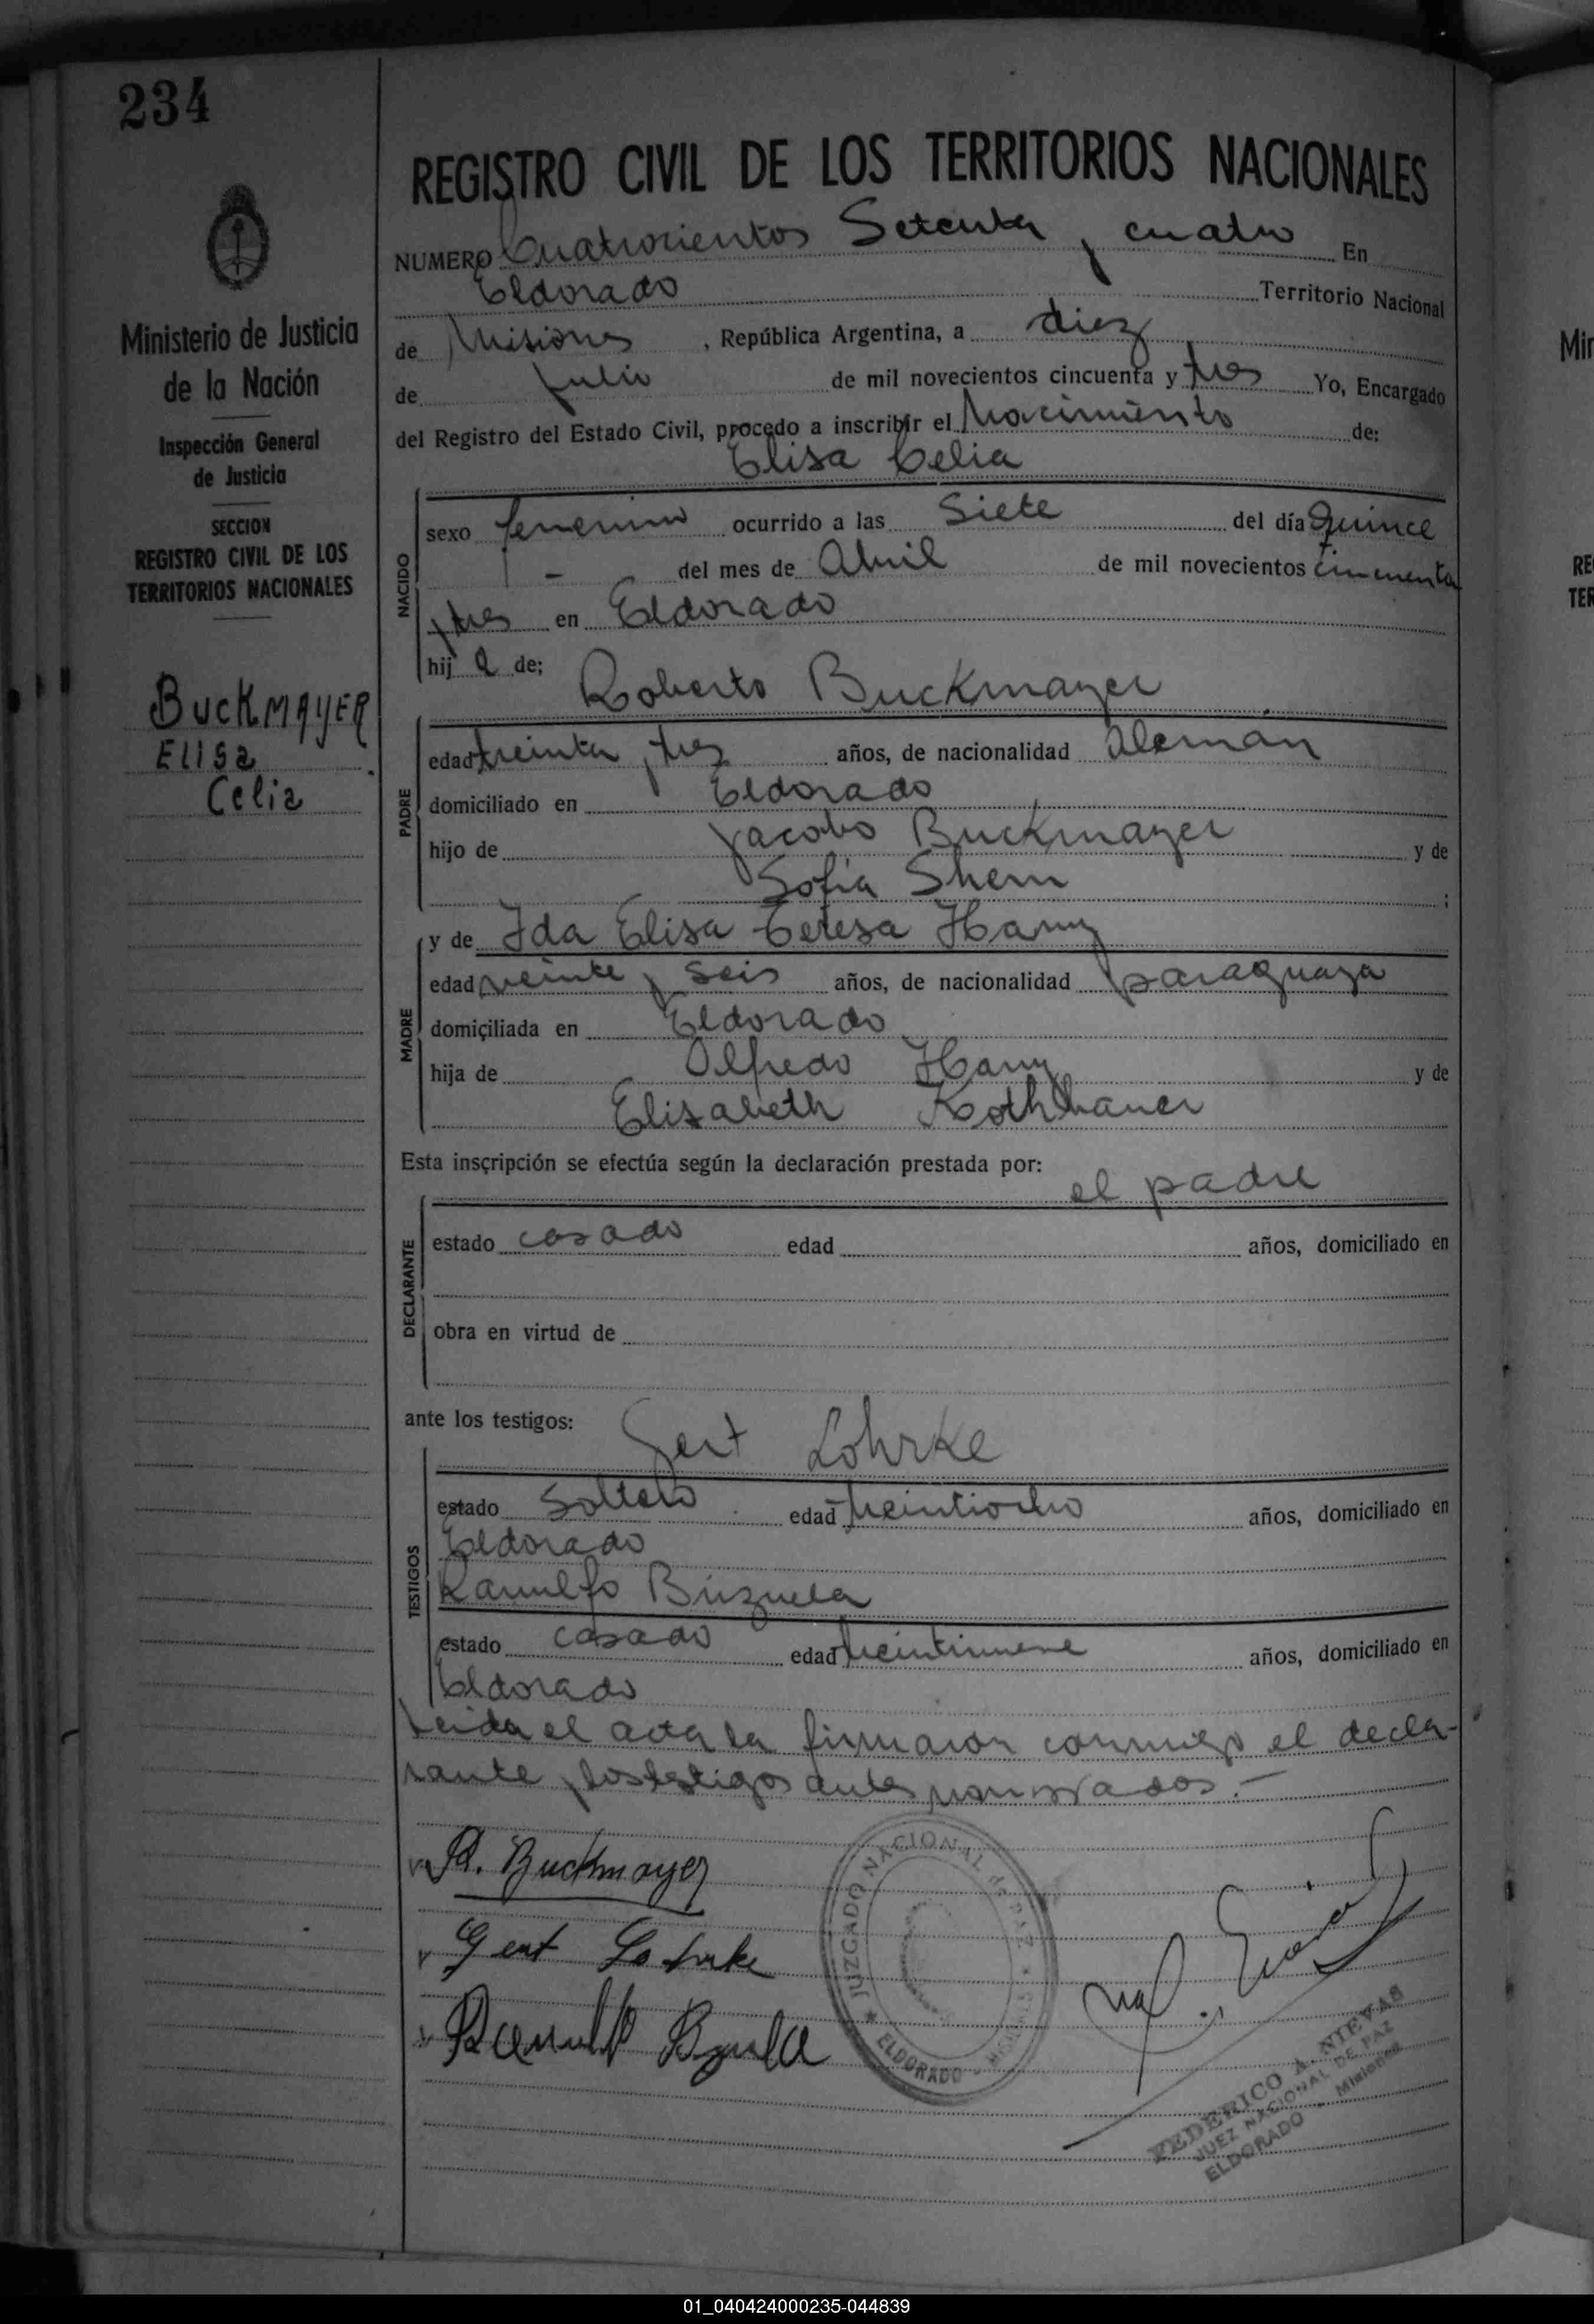 234
Ministerio de Justicia
de la Nación
Inspección General
de Justicia
SECCION
REGISTRO CIVIL DE LOS
TERRITORIOS NACIONALES
BUCKMAYER
Elisa
Celia
REGISTRO CIVIL DE LOS TERRITORIOS NACIONALES
NUMERO Cuatrocientos Setenta y cuatro En
Eldorado Territorio Nacional
de Misiones, República Argentina, a diez
de Julio de mil novecientos cincuenta y tres Yo, Encargado
del Registro del Estado Civil, procedo a inscribir el Nacimiento de:
Elisa Celia
NACIDO
sexo femenino ocurrido a las Siete del día quince
- del mes de Abril de mil novecientos cincuenta
y tres en Eldorado
hij a de:
Roberto Buckmayer
PADRE
edad treinta y tres años, de nacionalidad Alemán
domiciliado en Eldorado
hijo de Jacobo Buckmayer y de
Sofia Shem ;
MADRE
y de Ida Elisa Teresa
edad veinte y seis años, de nacionalidad paraguaya
domiciliada en Eldorado
hija de Alfredo y de
Elisabeth
Esta inscripción se efectúa según la declaración prestada por:
el padre
DECLARANTE
estado casado edad años, domiciliado en
obra en virtud de
ante los testigos:
Gert Lohrke
TESTIGOS
estado Soltero edad veintiocho años, domiciliado en
Eldorado
Ranulfo
estado casado edad veintinueve años, domiciliado en
Eldorado
Leida el acta la firmaron conmigo el decla-
rante y los testigos antes nombrados.-
R. Buckmayer
Gert Lohrke
JUZGADO NACIONAL DE PAZ
ELDORADO - MISIONES
FEDERICO A. NIEVAS
JUEZ NACIONAL DE PAZ
ELDORADO - Misiones
Min
RE
TER
01_040424000235-044839